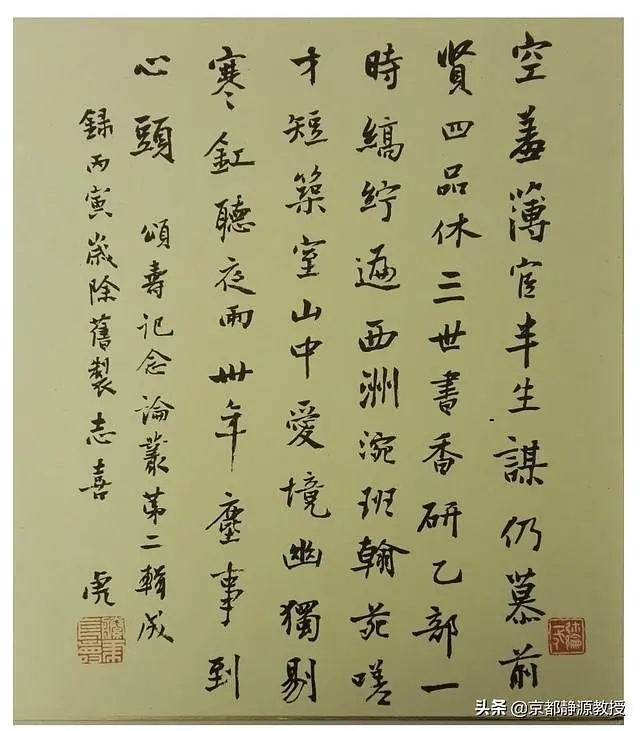 空羞薄宦半生謀仍慕前
賢四品休三世書香研乙部一
時縞紵遍西洲涴班翰苑嗟
才短築室山中愛境幽獨剔
寒釭聽夜雨卅年塵事到
心頭 頌壽記念論叢第二輯成
錄丙寅歲除舊製志喜 虎
头条 @京都静源教授